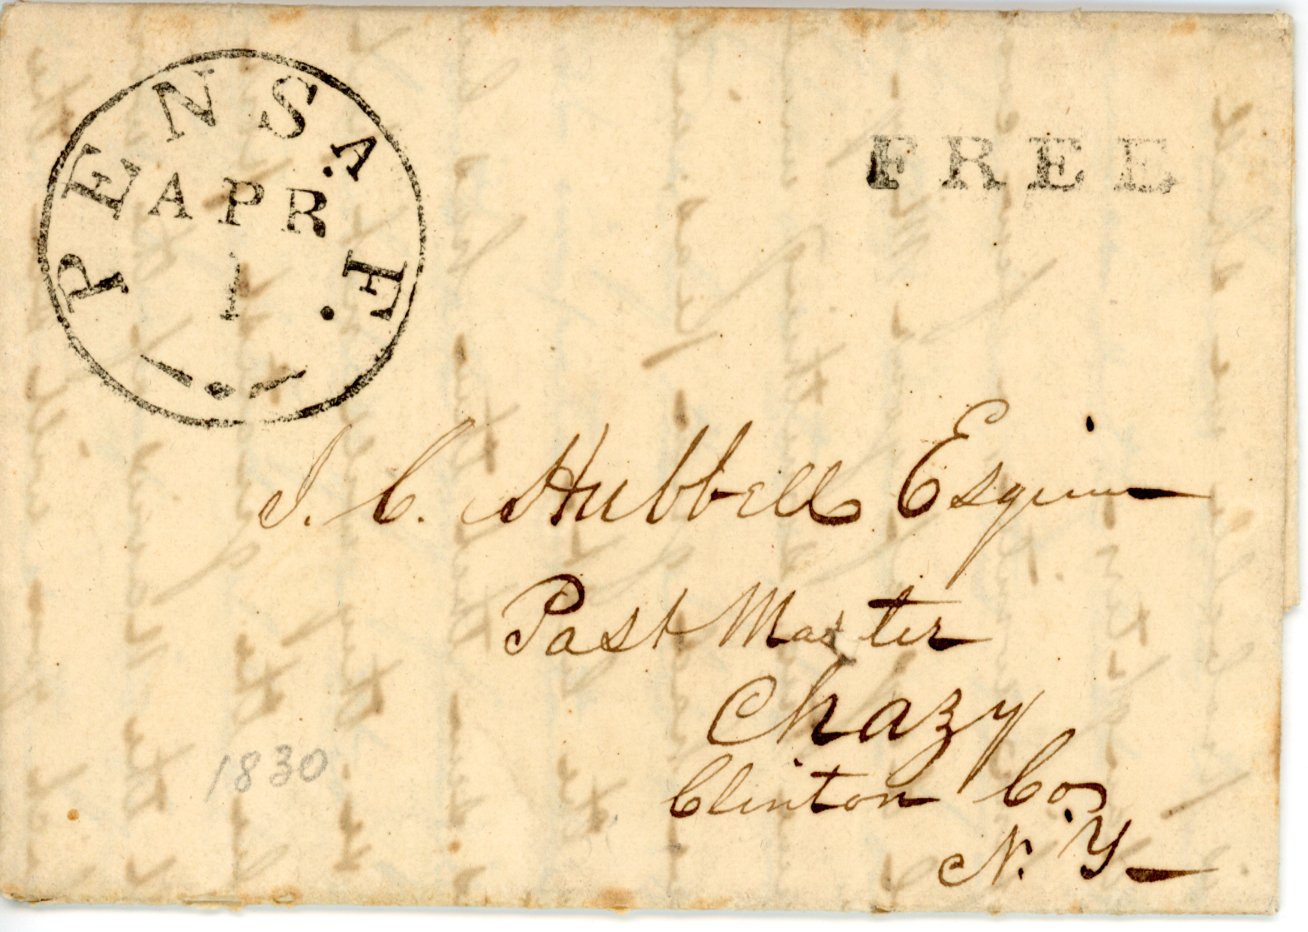 PENSA. F.
APR
1
FREE
J. C. Hubbell Esquire
Post Master
Chazy
Clinton Co.
N. Y.
1830